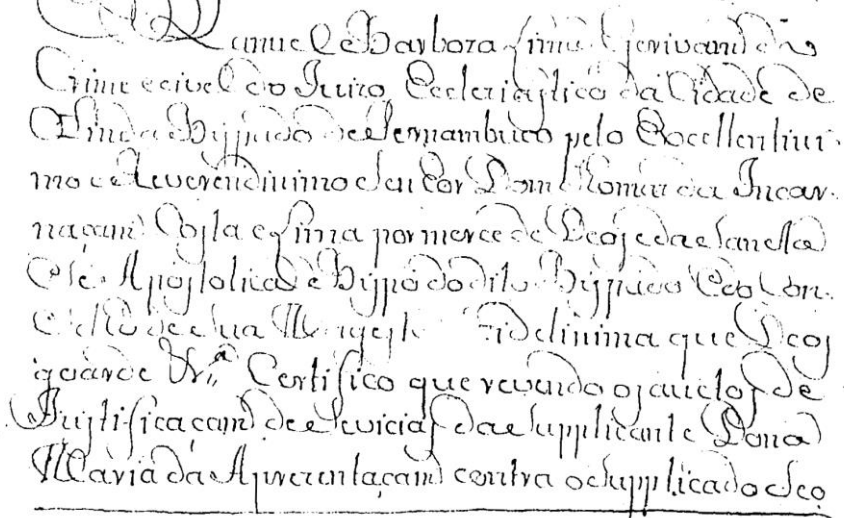 Manuel Barboza Lima Escrivam do
Crime e civel do Juizo Eccleziastico da Cidade de
Olinda Bispado de Pernambuco pelo Excellentissi
mo e Reverendissimo Senhor Dom Thomas da Incar
naçam Costa e Lima por merce de Deos e da Santa
Se Apostolica Bispo do dito Bispado e do Con
celho de Sua Magest Fidelissima que Deos
guarde Vr.ª Certifico que revendo os autos de
Justificaçam de Sevicias da Supplicante Dona
Maria da Aprezentaçam contra o Supplicado seo